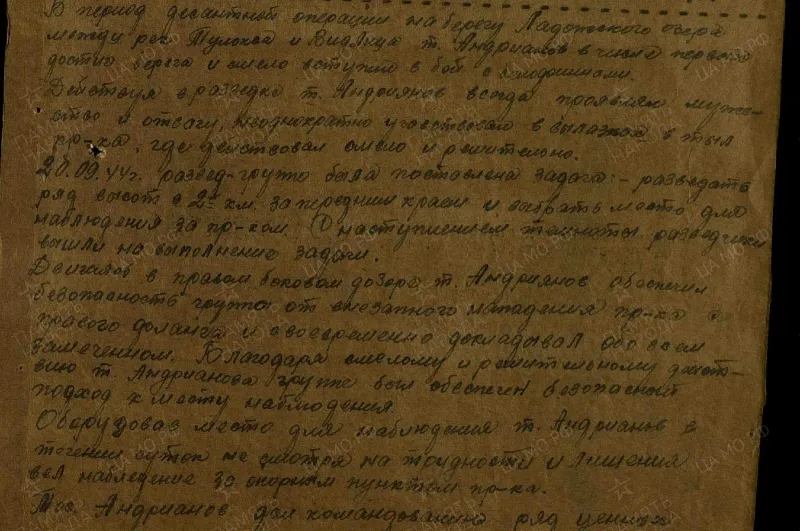 В период десантной операции на берегу Ладожского озера
между рек Тулокса и Видлица т. Андрианов в числе первого
достиг берега и смело вступил в бой с белофиннами.
Действуя в разведке т. Андриянов всегда проявлял муже-
ство и отвагу, неоднократно участвовал в вылазках в тыл
пр-ка, где действовал смело и решительно.
20.09.44г. развед-группа была поставлена задача: - разведать
ряд высот в 2х км. за передним краем и выбрать место для
наблюдения за пр-ком. С наступлением темноты разведчики
вышли на выполнение задачи.
Двигаясь в правом боковом дозоре, т. Андриянов обеспечил
безопасность группы от внезапного нападения пр-ка с
правого фланга и своевременно докладывал обо всем
замеченном. Благодаря смелому и решительному дейст-
вию т. Андрианова группе был обеспечен безопасный
подход к месту наблюдения.
Оборудовав место для наблюдения т. Андрианов в
течении суток не смотря на трудности и лишения
вел наблюдение за опорным пунктом пр-ка.
Тов. Андрианов дал командованию ряд ценных